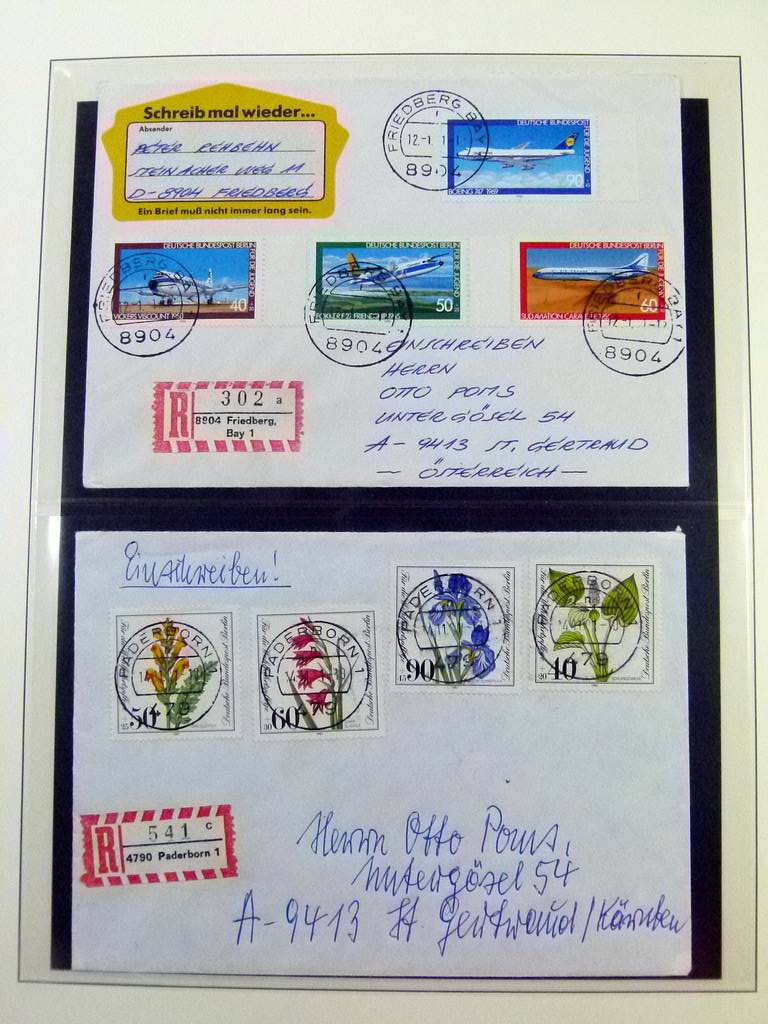 Schreib mal wieder...
Absender
PETER REHBEHN
STEINACHER WEG 11
D-8904 FRIEDBERG
Ein Brief muß nicht immer lang sein.
FRIEDBERG, BAY 1
12.-1.
8904
DEUTSCHE BUNDESPOST
FÜR DIE JUGEND
90
BOEING 747 1969
DEUTSCHE BUNDESPOST BERLIN
FÜR DIE JUGEND
40
VICKERS VISCOUNT 1950
FRIEDBERG, BAY
8904
DEUTSCHE BUNDESPOST BERLIN
FÜR DIE JUGEND
50
FOKKER F 27 FRIENDSHIP 1955
FRIEDBERG
8904
DEUTSCHE BUNDESPOST BERLIN
FÜR DIE JUGEND
60
SUD AVIATION CARAVELLE 1955
FRIEDBERG, BAY 1
8904
EINSCHREIBEN
HERRN
OTTO POMS
UNTERGÖSEL 54
A-9413 ST. GERTRAUD
- ÖSTERREICH -
R
302 a
8904 Friedberg,
Bay 1
Einschreiben!
PADERBORN 1
479
50
Deutsche Bundespost Berlin
PADERBORN 1
479
60
Deutsche Bundespost Berlin
PADERBORN 1
479
90
Deutsche Bundespost Berlin
PADERBORN 1
479
40
Deutsche Bundespost Berlin
R
541 c
4790 Paderborn 1
Herrn Otto Poms,
Untergösel 54
A-9413 St. Gertraud/Kärnten